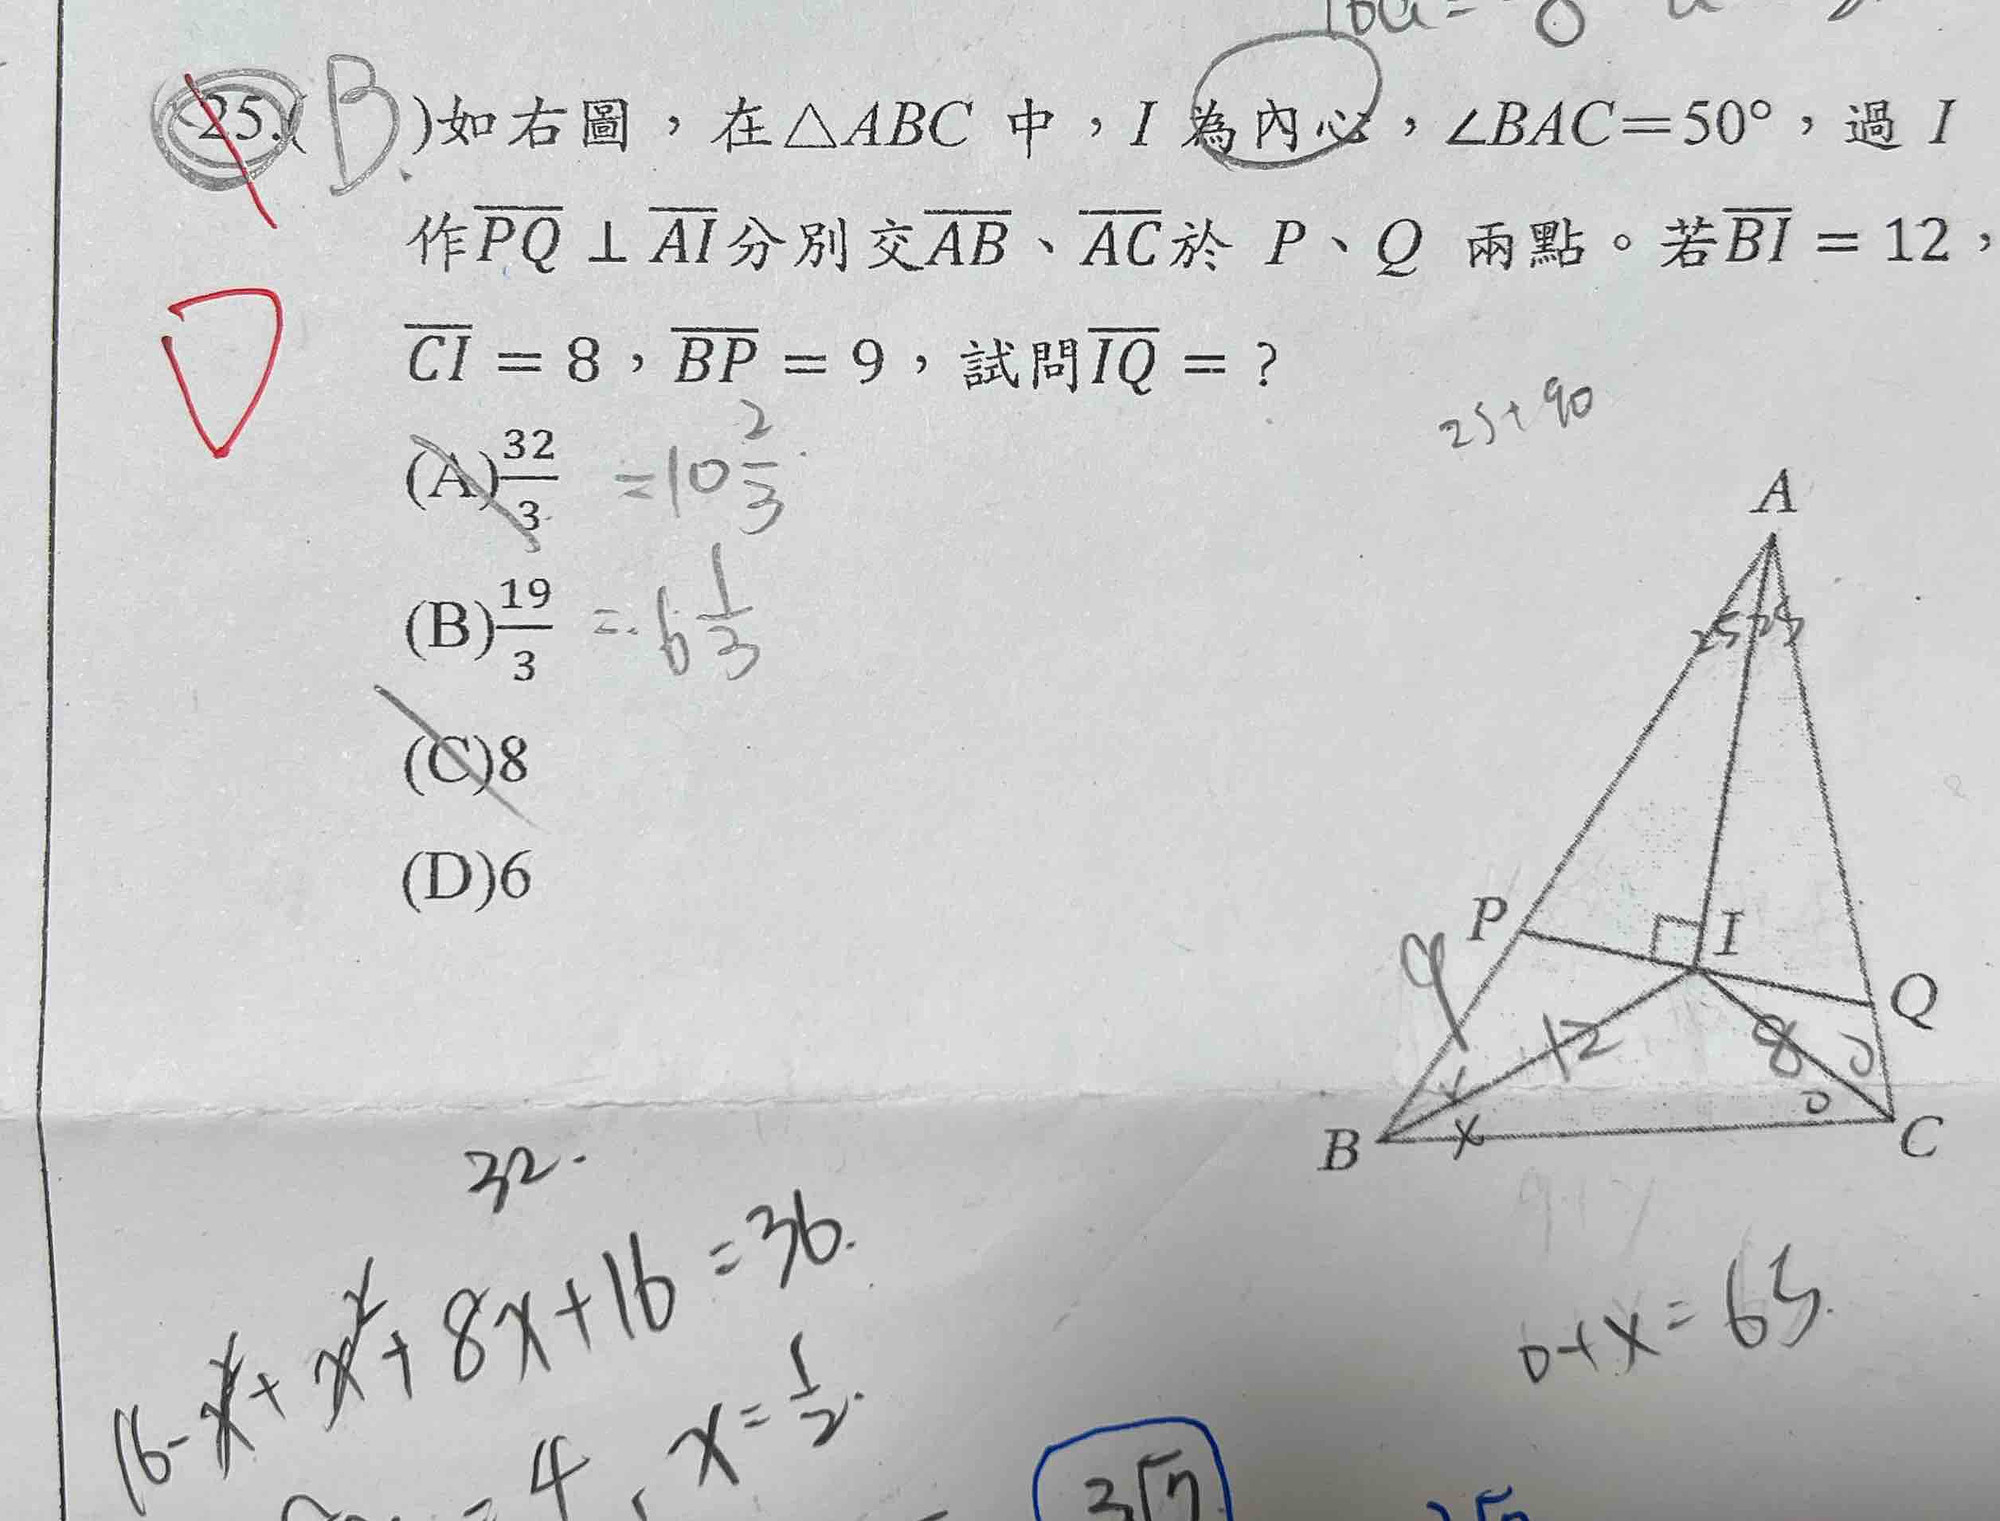 25.( B )如右圖，在△ABC 中，I 為內心，∠BAC=50°，過 I
作PQ⊥AI分別交AB、AC於 P、Q 兩點。若BI = 12，
CI = 8，BP = 9，試問IQ = ?
(A)32/3 =10 2/3
(B)19/3 = 6 1/3
(C)8
(D)6
25+90
A
25 25
P
I
Q
9
12
8
B
x
x
C
32.
16-x²+x²+8x+16=36.
=4, x=1/2.
0+x=65
3√7